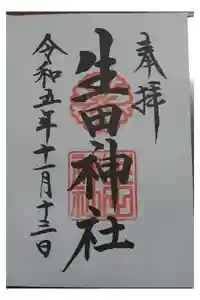 奉拝
生田神社
令和五年十一月十三日